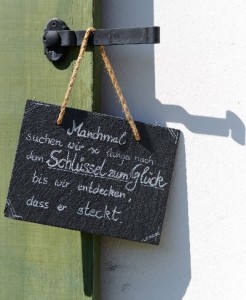 Manchmal
suchen wir so lange nach
dem Schlüssel zum Glück
bis wir entdecken,
dass er steckt.